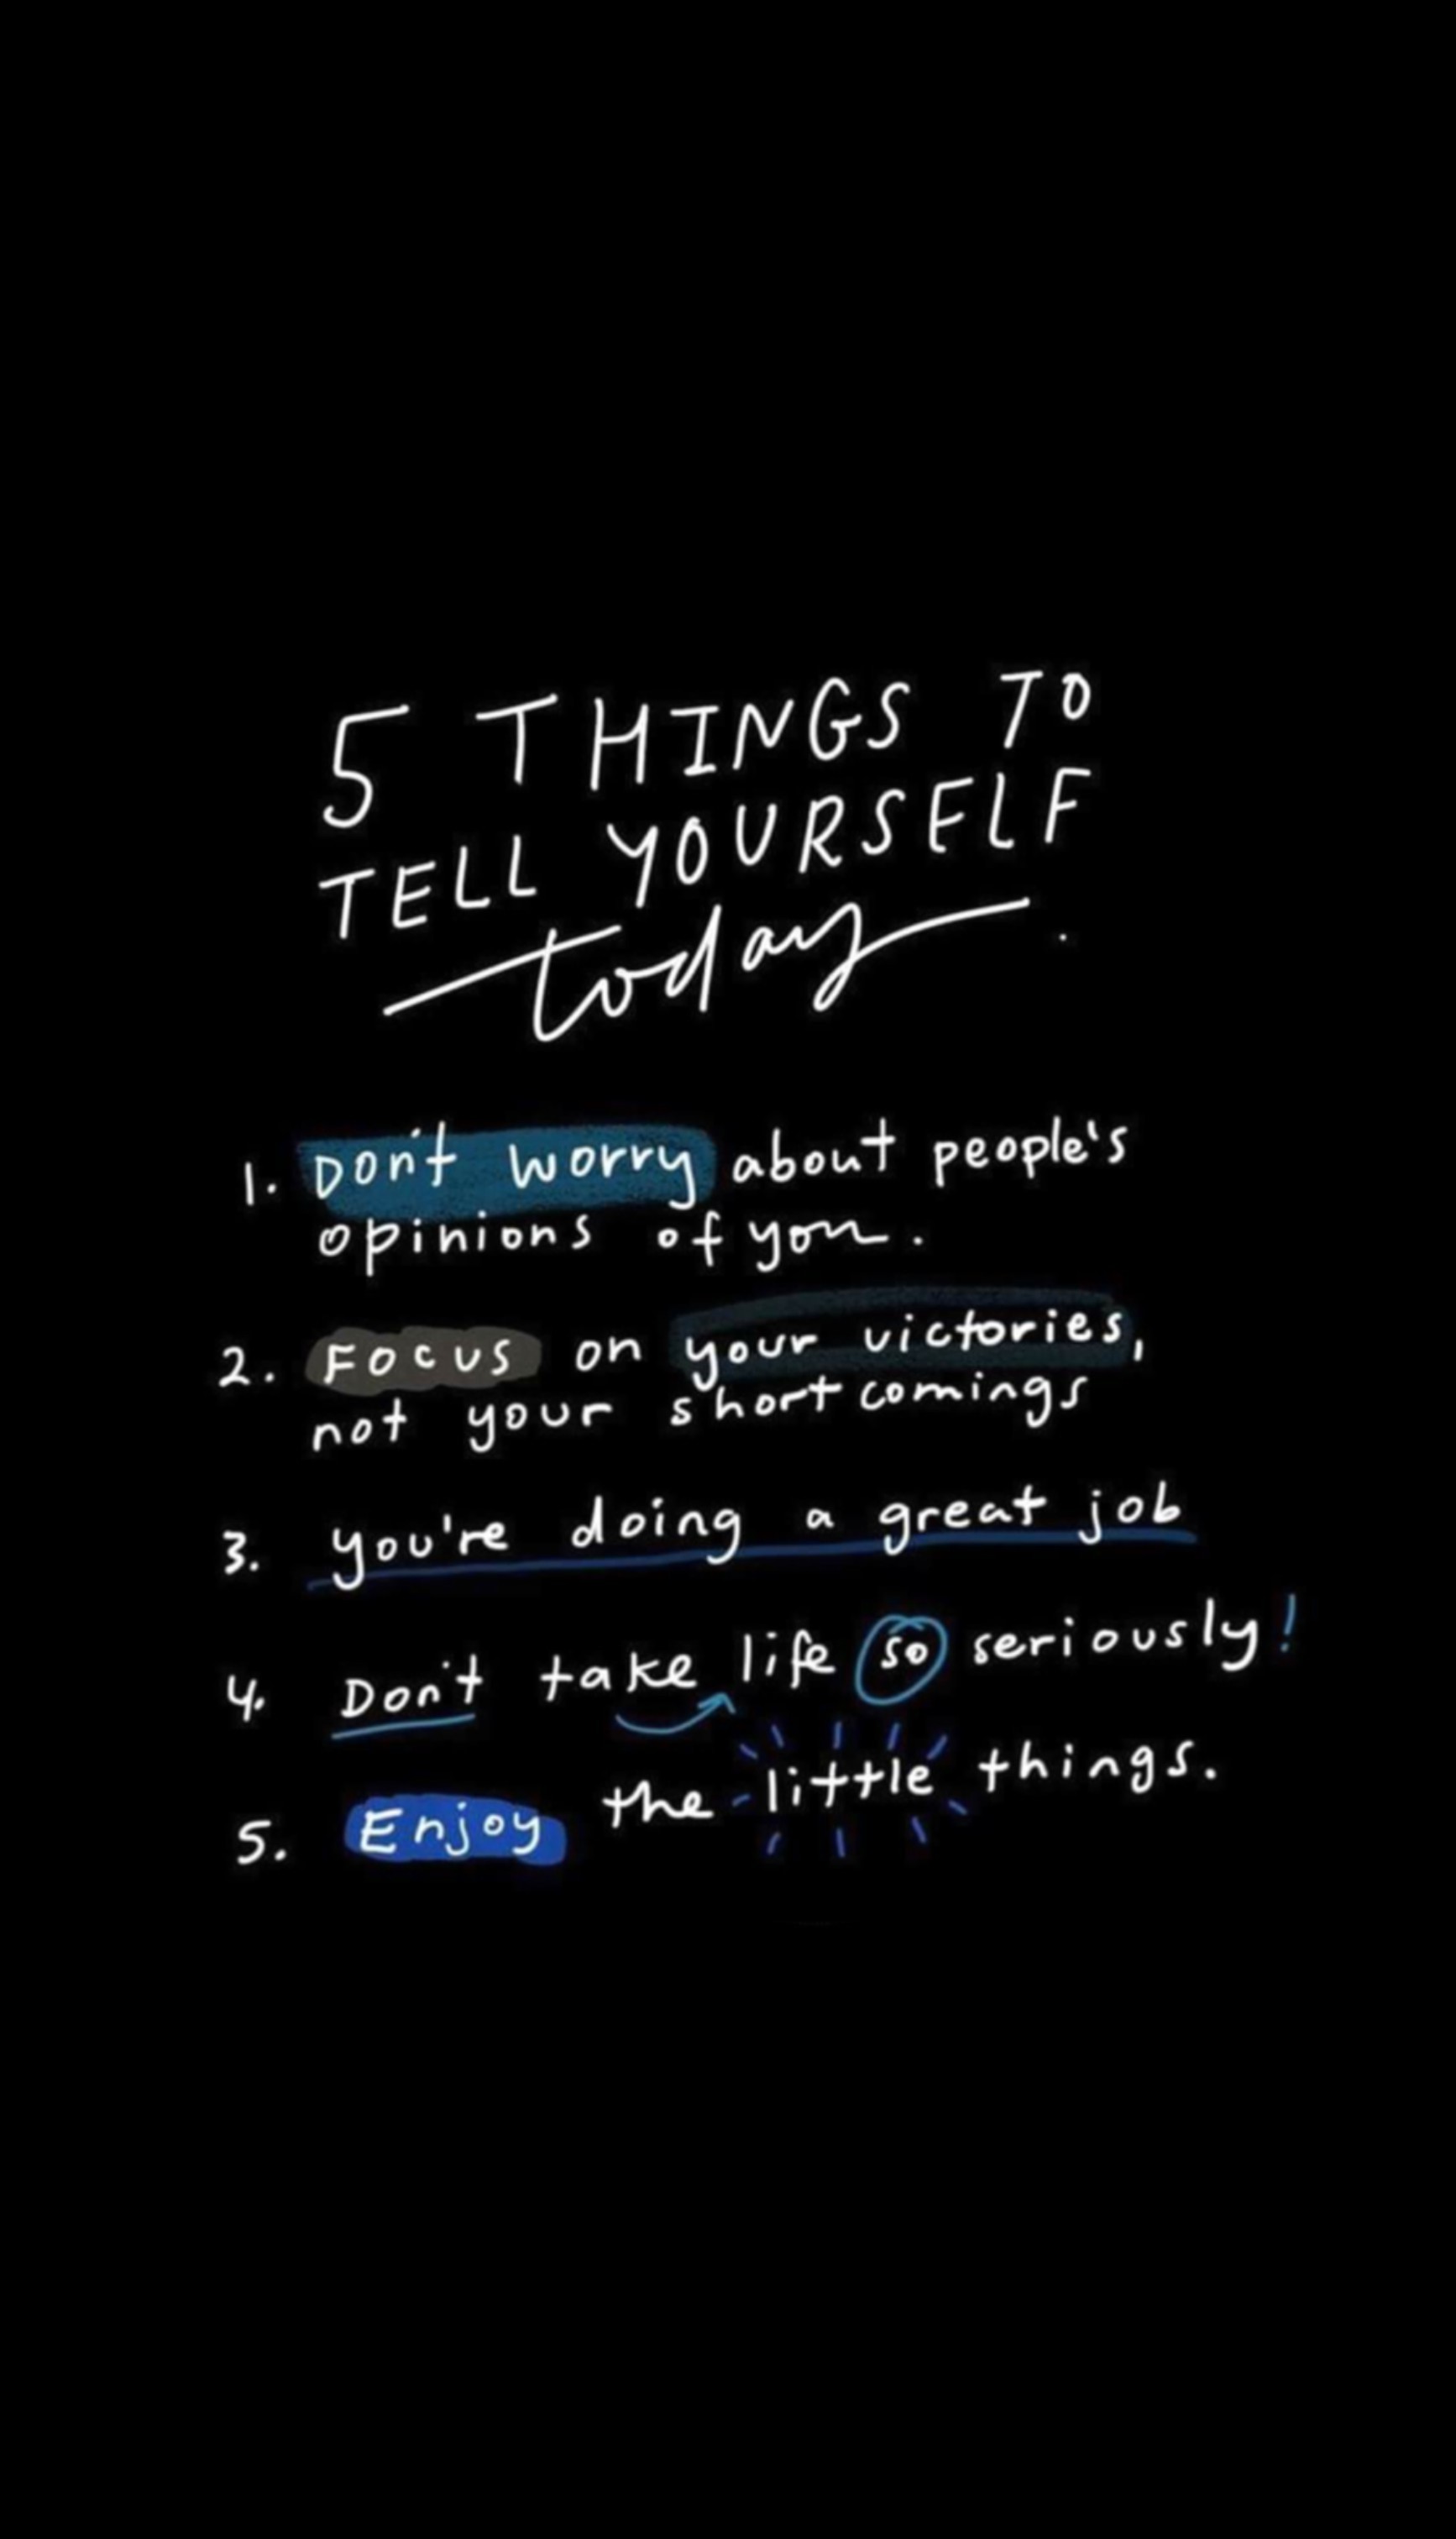 5 THINGS TO
TELL YOURSELF
today.
1. Don't worry about people's
opinions of you.
2. Focus on your victories,
not your shortcomings
3. you're doing a great job
4. Don't take life so seriously!
5. Enjoy the little things.